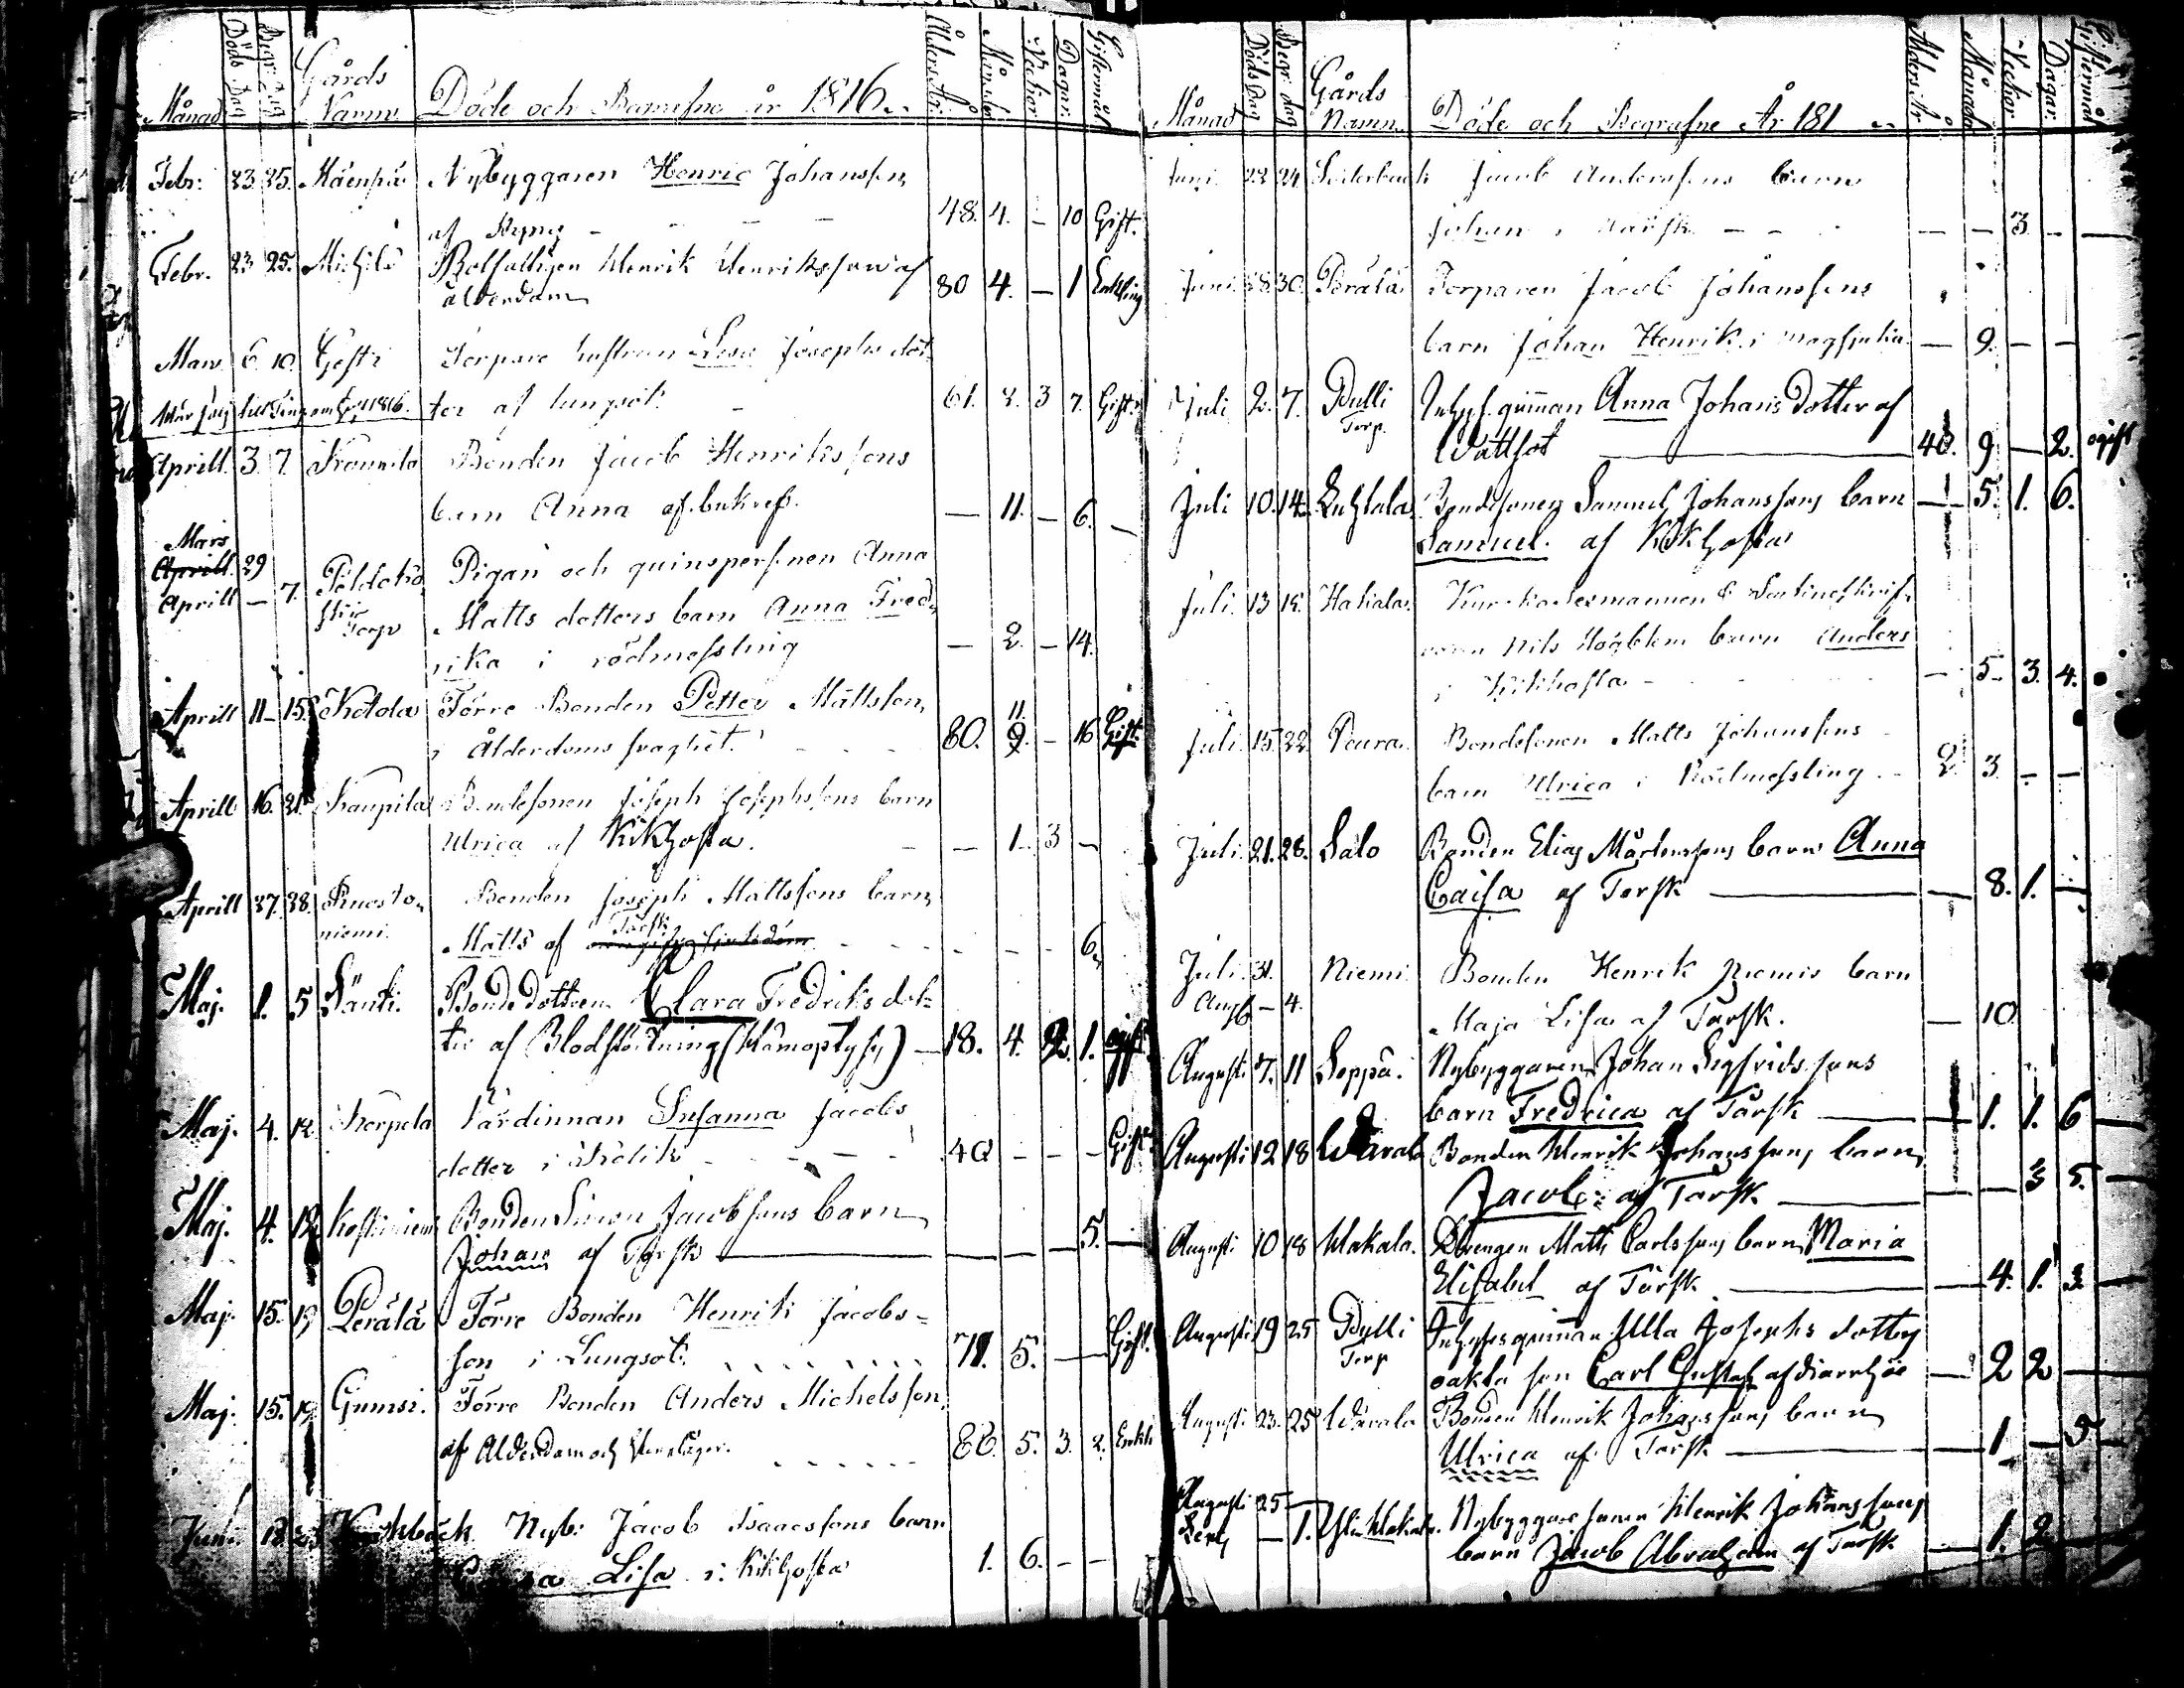 Månad Döds Dag Begr: dag Gårds Namn Döde och Begrafne år 1816. Ålders År Månader Veckor Dagar Giftermål
Febr: 23 25. Mäenpä Nybyggaren Henric Johansson
af 48. 4. – 10 Gift.
Febr. 23 25. Bolfattigen Henrik Henriksson af
ålderdom 80 4. – 1 Enkling
Mars 6 10. Torpare hustrun Lisa Josephs dot-
ter af lungsot 61. 8. 3 7. Gift
till Ting 1816.
Aprill. 3. 7. Bonden Jacob Henrikssons
barn Anna af — 11. – 6. –
Mars
Aprill. 29
Aprill — 7. Torp Pigan och qvinspersonen Anna
Matts dotters barn Anna Fred-
rika i rödmessling — 2. – 14.
Aprill 11 – 15. Ketola Förre Bonden Petter Mattsson
i Ålderdoms svaghet. 80. 11. 9. – 16 Gift.
Aprill 16. 21. Kaupila Bondesonen Joseph Josephssons barn
Ulrica af Kikhosta. – 1. 3 –
Aprill 27. 28. Ruosto-
niemi. Bonden Joseph Mattssons barn
Matts af Torsk 6.
Maj. 1. 5 Sänti. Bonde dottren Clara Fredriks dot-
ter af Blodstörtning (Hämoptysis) – 18. 4. 2. 1. ogift
Maj. 4. 12. Korpela Värdinnan Susanna Jacobs
dotter i Kolik 40 – – – Gift
Maj. 4. 12. Koskiniemi Bonden Simon Jacobsons barn
Johan af Torsk — — — 5. —
Maj. 15. 19 Perälä Förre Bonden Henrik Jacobs-
son i Lungsot. 71. 5. — Gift.
Maj. 15. 19. Gumsi. Förre Bonden Anders Michelsson
af Ålderdom och 5. 3. 2. Enkl.
Juni. Nyb: Jacob Isaacssons barn
Lisa i Kikhosta 1. 6. – –
Månad Döds Dag Begr. dag Gårds Namn Döde och Begrafne År 181 Ålders År Månader Veckor Dagar Giftermål
Juni 22 24 Söderback Jacob Anderssons barn
Johan i Torsk — — 3 —
Juni 28 30. Perälä Torparen Jacob Johanssons
barn Johan Henrik i — 9. — —
Juli 2. 7. Pulli
Torp. Inhys. qvinnan Anna Johans dotter af
Vattsot 40. 9 — 2. ogift
Juli 10. 14. Luhtala Bondesonen Samuel Johanssons barn — 5. 1. 6.
Samuel af Kikhosta
Juli 13 Hakala
Nils Högblom barn Anders
i Kikhosta – 5. 3. 4.
Juli. 15. 22 Peura Bondesonen Matts Johanssons
barn Ulrica i Rödmessling 2. 3. – –
Juli. 21. 28. Salo Bonden Elias Mårtenssons barn Anna
Caisa af Torsk — 8. 1. —
Juli. 31. Niemi Bonden Henrik Niemis barn
Aug – 4. Maja Lisa af Torsk. — 10
Augusti 7. 11 Seppä. Nybyggaren Johan Sigfridssons
barn Fredrica af Torsk — 1. 1. 6 —
Augusti 12 18 Wävala Bonden Henrik Johanssons barn
Jacob af Torsk — — 3 5. —
Augusti 10 18 Hakala. Drengen Matts Carlssons barn Maria
Elisabet af Torsk — 4. 1. 3 —
Augusti 19 25 Pylli
Torp Inhyses qvinnan Ulla Josephs dotters
oäkta son Carl Gustaf af diarrhöe — 2 2 —
Augusti 23. 25 Wävala Bonden Henrik Johanssons barn
Ulrica af Torsk — 1 — 5 —
Augusti 25 —
Sept — 1. Yli Hakala. Nybyggare sonen Henrik Johanssons
barn Jacob Abraham af Torsk — 1. 2